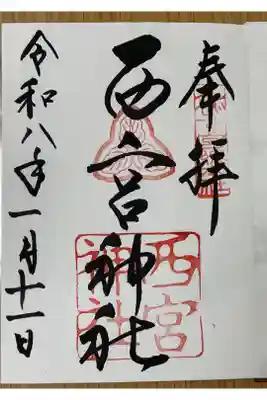 奉拝
西宮神社
西宮神社
令和八年一月十一日